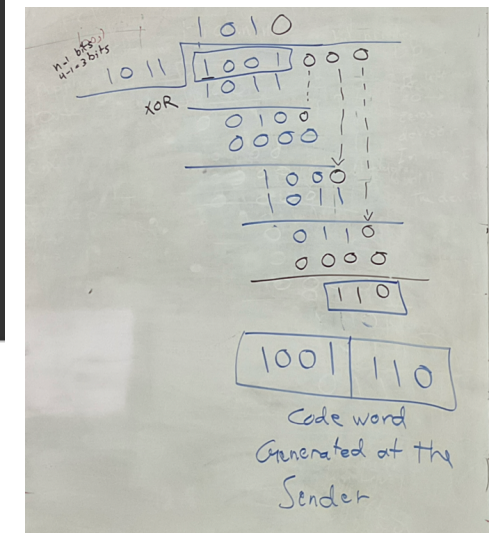 1 0 1 0
n-1 bits
4-1=3 bits
1 0 1 1
1 0 0 1 0 0 0
1 0 1 1
XOR
0 1 0 0
0 0 0 0
1 0 0 0
1 0 1 1
0 1 1 0
0 0 0 0
1 1 0
1 0 0 1 1 1 0
Code word
Generated at the
Sender